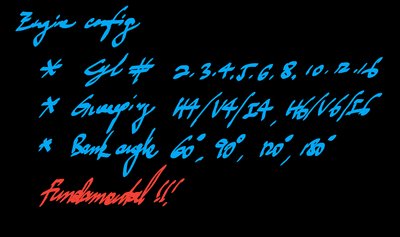 Engine config
* Cyl # 2.3.4.5.6.8.10.12.16
* Grouping H4/V4/I4, H6/V6/I6
* Bank angle 60°, 90°, 120°, 180°
Fundamental!!!